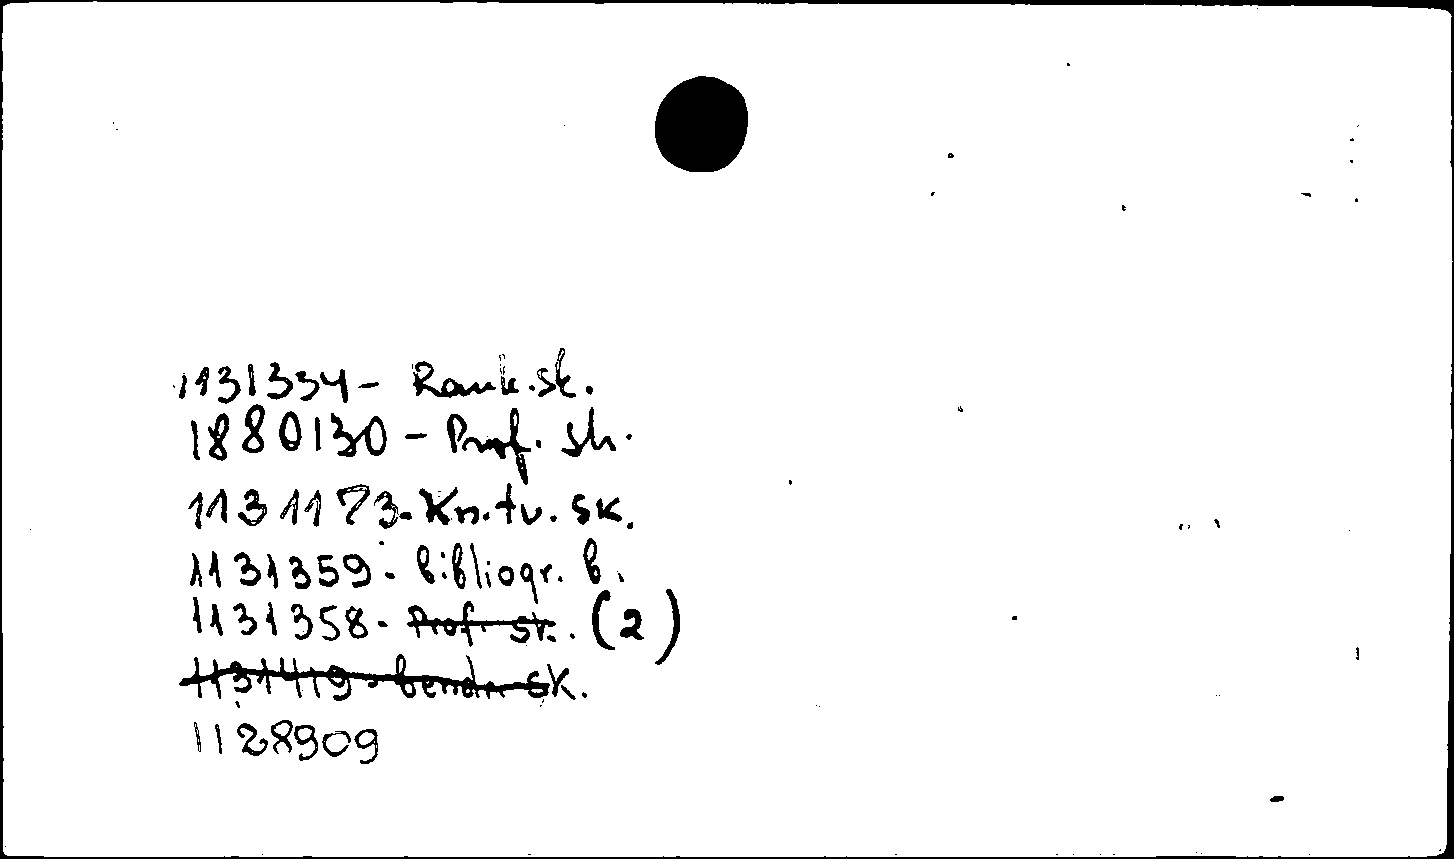 1131334 - Rank. sk.
1880130 - Prof. sk.
1131173 - Kn. tv. sk.
1131359 - bibliogr. b.
1131358 - Prof. sk. (2)
1131419 - bendr. sk.
1128909